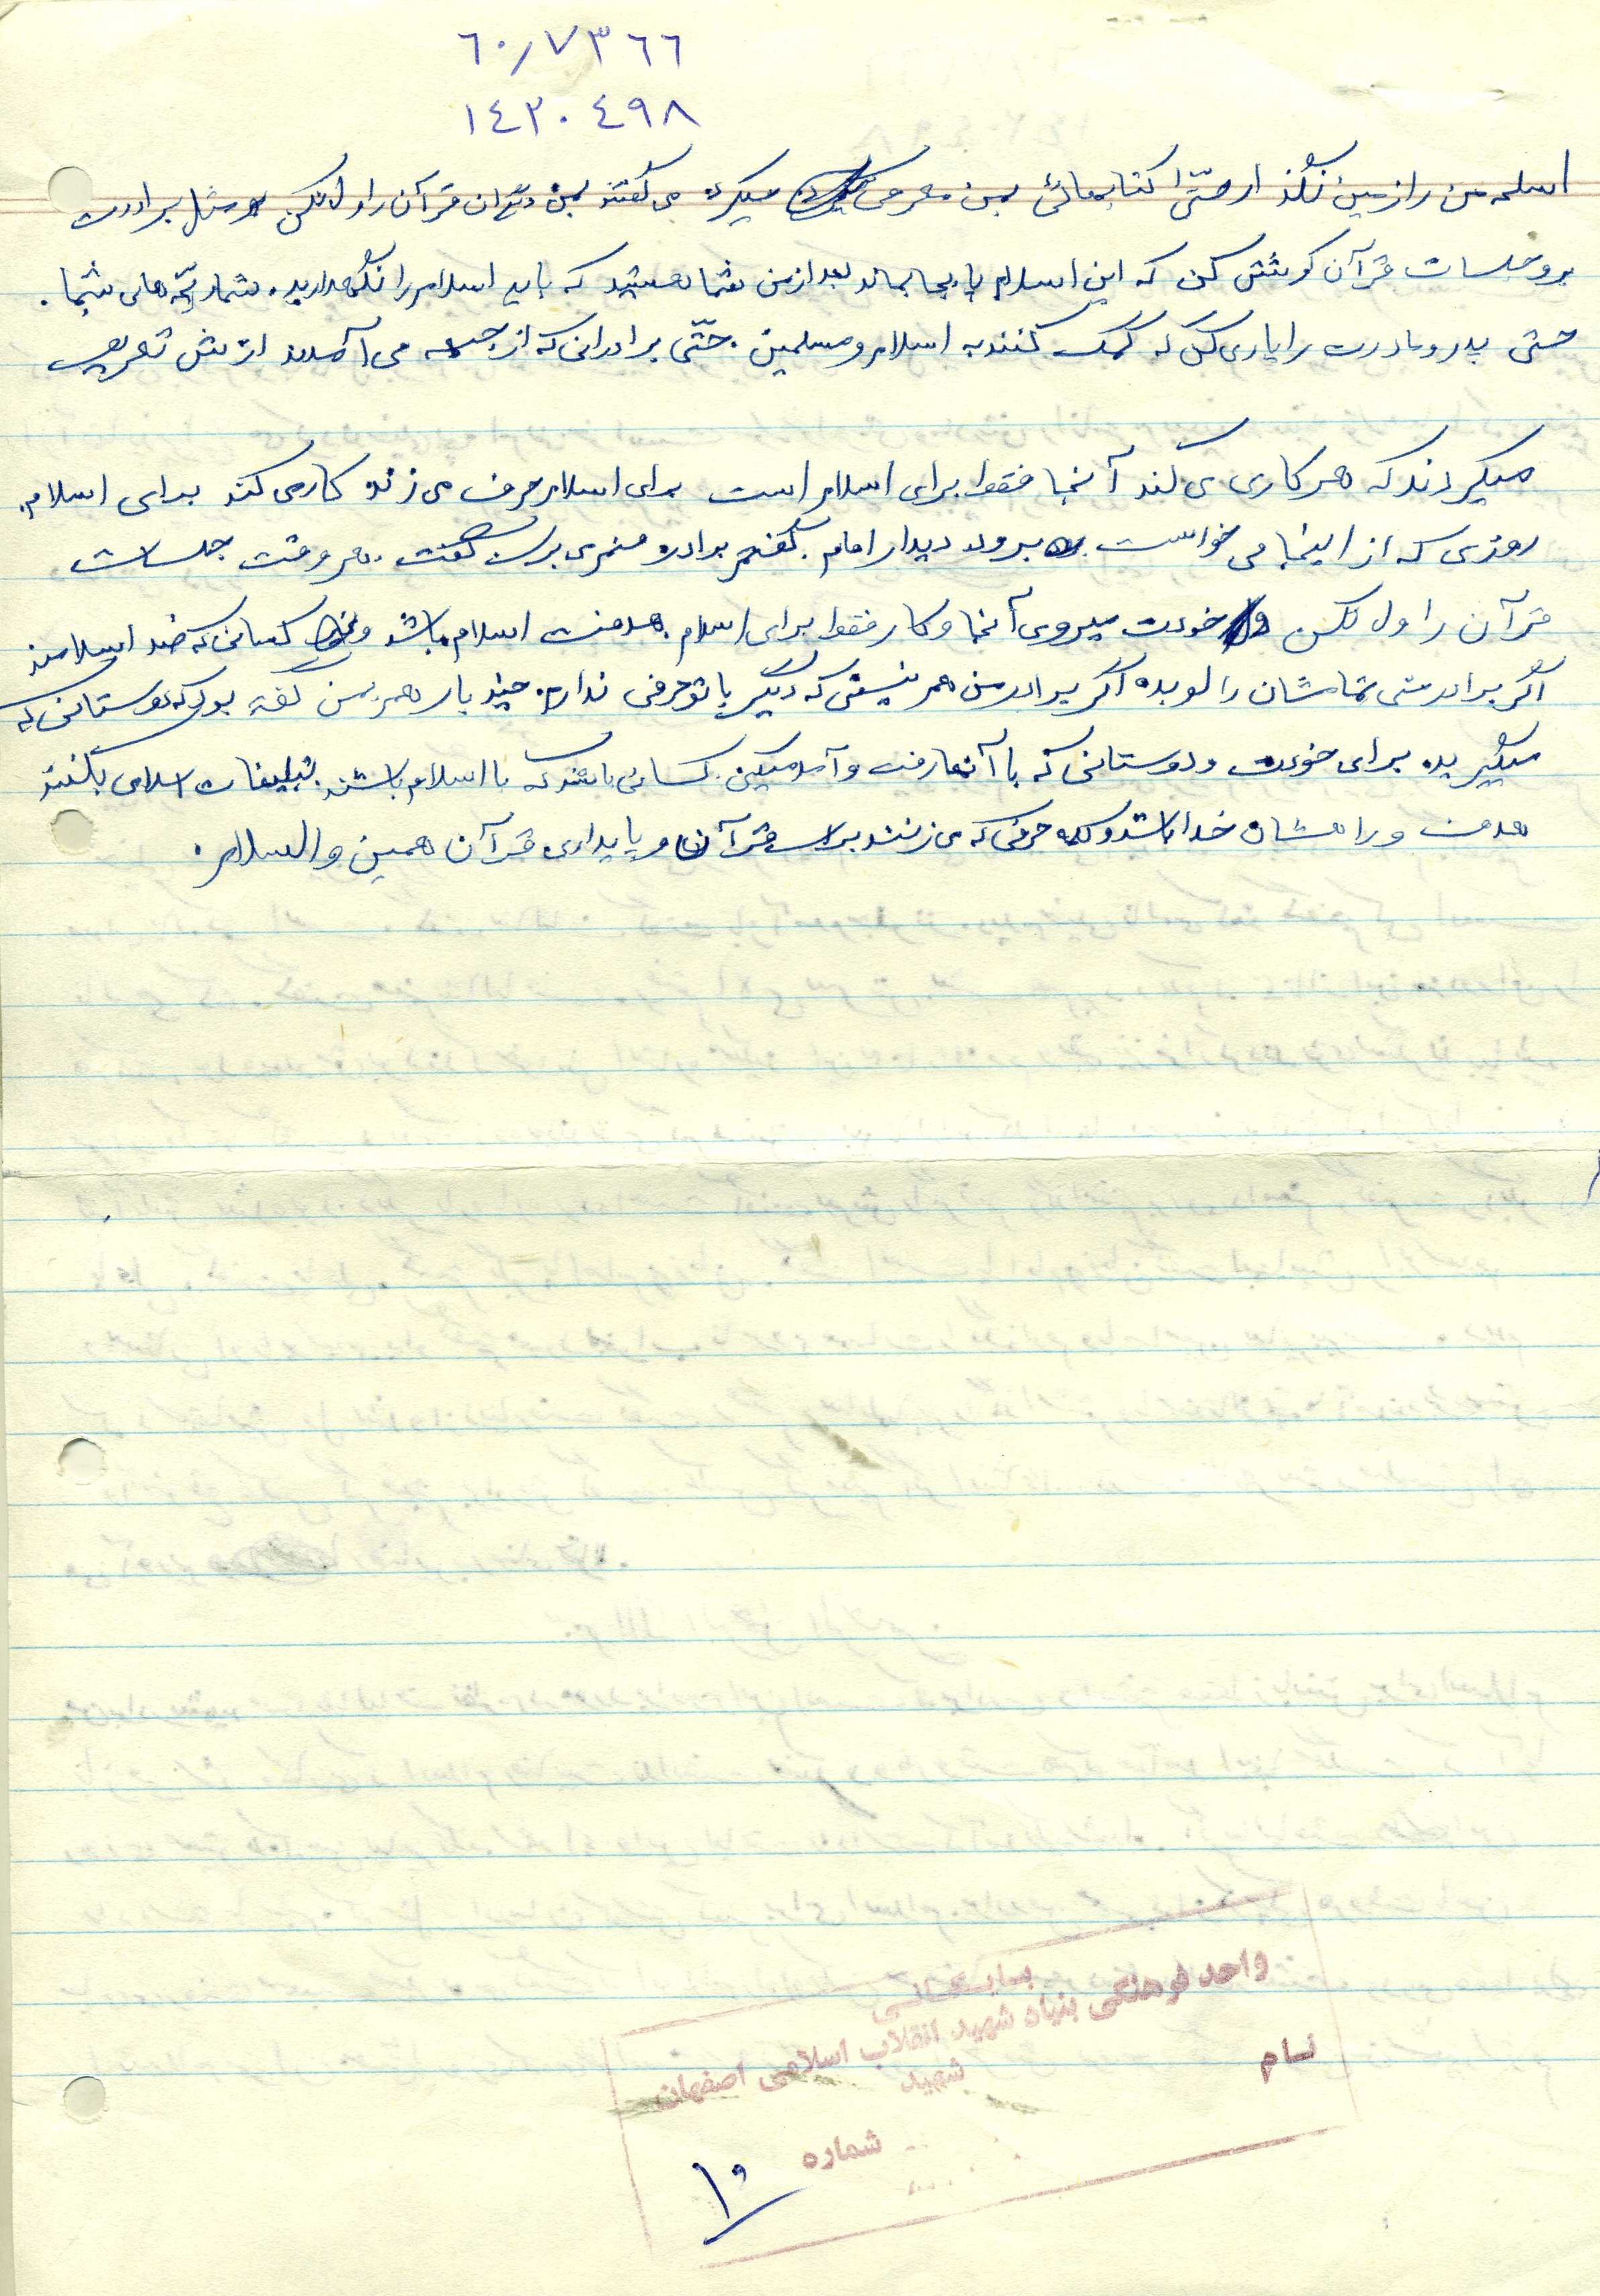 ۶۰/۷۳۶۶
۱۴۲۰۴۹۸
اسلحه من را زمین نگذار حتّی کتابهائی بمن معرفی میکرد می گفتند بمن قرآن را ول نکن مثل برادرت
برو جلسات قرآن کوشش کن که این اسلام پا بجا بماند بعد از من شما هستید که باید اسلام را نگهدارید. شما و بچّه های شما.
حتی پدر و مادرت را یاری کن که کمک کنند به اسلام و مسلمین. حتّی برادرانی که از جبهه می آمدند ازش تعریف
میکردند که هر کاری می کند آنجا فقط برای اسلام است برای اسلام حرف می زند کار می کند برای اسلام.
روزی که از اینجا می خواست برود دیدار امام. گفتم برادر منم می برید گفت. هر وقت جلسات
قرآن را ول نکن خودت پیروی آنجا و کار فقط برای اسلام. هدفت اسلام باشد و کسانی که ضد اسلامند
اگر برادرمنی تمامشان را لو بده اگر برادر من هم نیستی که دیگر با تو حرفی ندارم. چند بار هم بمن گفته بود که دوستانی که
میگیرید. برای خودت و دوستانی که با آنها رفت و آمد میکنی. کسانی باشند که با اسلام باشند. تبلیغات اسلامی بکنند
هدف و راهشان خدا باشد و کلمه حرفی که می زنند برای قرآن و پایداری قرآن همین والسلام.
بایگانی
واحد فرهنگی بنیاد شهید انقلاب اسلامی اصفهان
نام
شهید
شماره
۱۰